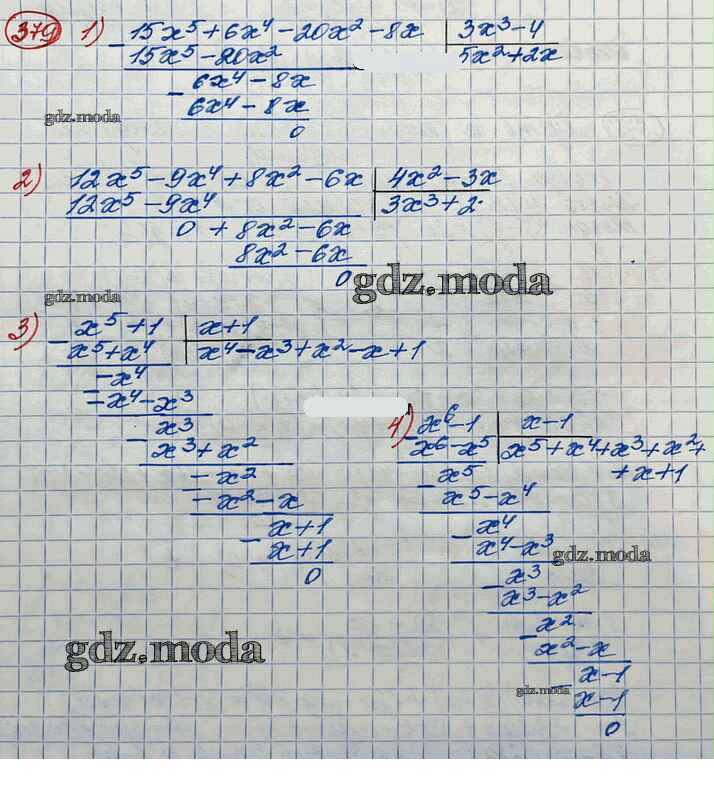 379 1) 15x⁵ + 6x⁴ - 20x² - 8x | 3x³ - 4
- 15x⁵ - 20x² | 5x² + 2x
6x⁴ - 8x
- 6x⁴ - 8x
0
gdz.moda
2) 12x⁵ - 9x⁴ + 8x² - 6x | 4x² - 3x
12x⁵ - 9x⁴ | 3x³ + 2
0 + 8x² - 6x
8x² - 6x
0
gdz.moda
gdz.moda
3) x⁵ + 1 | x + 1
- x⁵ + x⁴ | x⁴ - x³ + x² - x + 1
- x⁴
- x⁴ - x³
x³
- x³ + x²
- x²
- x² - x
x + 1
- x + 1
0
4) x⁶ - 1 | x - 1
- x⁶ - x⁵ | x⁵ + x⁴ + x³ + x² +
+ x + 1
x⁵
- x⁵ - x⁴
x⁴
- x⁴ - x³
gdz.moda
x³
- x³ - x²
x²
- x² - x
x - 1
- x - 1
0
gdz.moda
gdz.moda